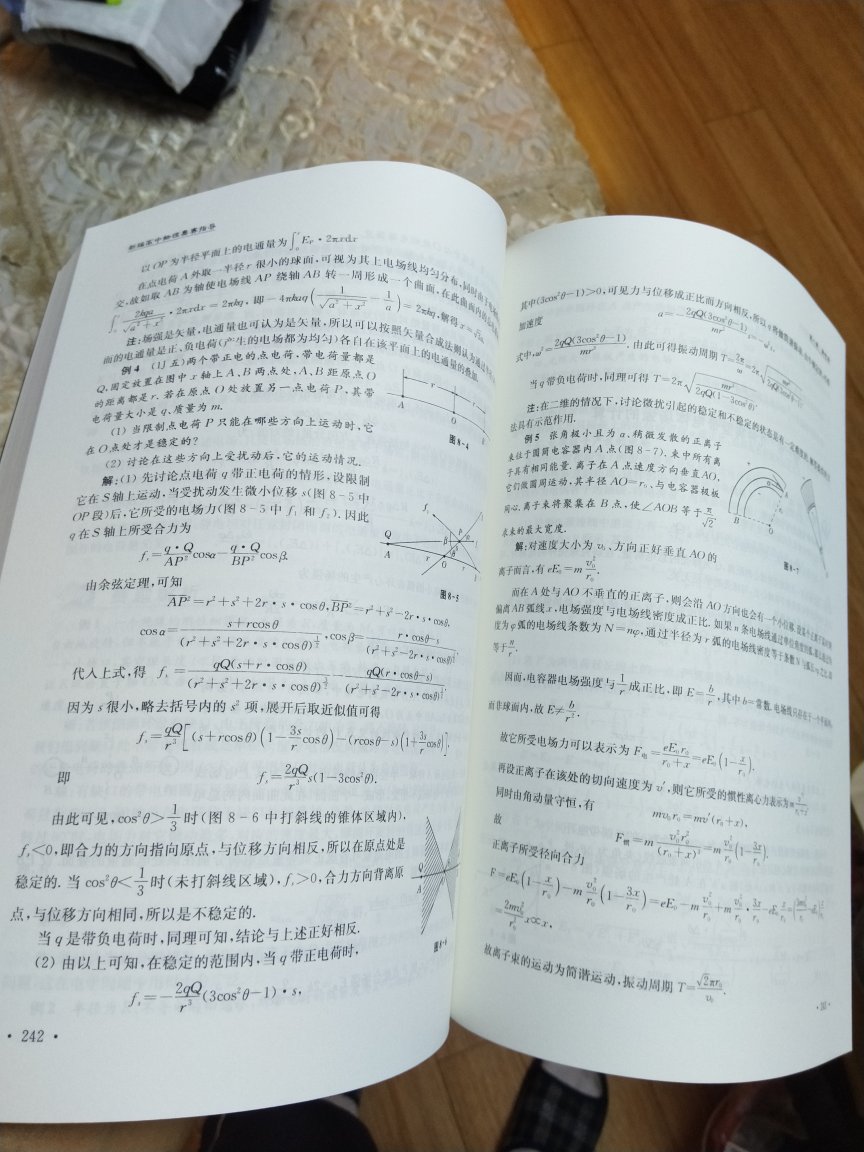 新编高中物理竞赛指导
以 OP 为半径平面上的电通量为∫₀ʳ Eₓ·2πxdx
在点电荷 A 外取一半径 r 很小的球面,可视为其上电场线均匀分布,同时由于电场线
交,故如取 AB 为轴使电场线 AP 绕轴 AB 转一周形成一个曲面,在此曲面内的
·2πxdx=2πkq,即-4πkaq(1/√(a²+x²)-1/a)=2πkq,解得
注:场强是矢量,电通量也可认为是矢量,所以可以按照矢量合成法则认为通过
面的电通量是正、负电荷(产生的电场都为均匀)各自在该平面上的电通量的叠加.
例4 (IJ五)两个带正电的点电荷,带电荷量都是
Q,固定放置在图中 x 轴上 A、B 两点处,A、B 距原点 O
的距离都是 r.若在原点 O 处放置另一点电荷 P、其带
电荷量大小是 q、质量为 m.
A
O
r
图 8-4
(1) 当限制点电荷 P 只能在哪些方向上运动时,它
在 O 点处才是稳定的?
(2) 讨论在这些方向上受扰动后,它的运动情况.
解:(1) 先讨论点电荷 q 带正电荷的情形,设限制
它在 S 轴上运动,当受扰动发生微小位移 s(图 8-5 中
OP 段)后,它所受的电场力(图 8-5 中 f₁ 和 f₂).因此
q 在 S 轴上所受合力为
fₛ=q·Q/AP² cosα-q·Q/BP² cosβ.
Q
A
O
图 8-5
由余弦定理,可知
AP²=r²+s²+2r·s·cosθ,BP²=r²+s²-2r·s·cosθ,
cosα=(s+rcosθ)/(r²+s²+2r·s·cosθ)^(1/2),cosβ=(r·cosθ-s)/(r²+s²-2r·s·cosθ)^(1/2)
代入上式,得 fₛ=qQ(s+r·cosθ)/(r²+s²+2r·s·cosθ)^(3/2)-qQ(r·cosθ-s)/(r²+s²-2r·s·cosθ)^(3/2).
因为 s 很小,略去括号内的 s² 项,展开后取近似值可得
fₛ=qQ/r³[(s+rcosθ)(1-3s/r cosθ)-(rcosθ-s)(1+3s/r cosθ)],
即 fₛ=2qQ/r³ s(1-3cos²θ).
由此可见,cos²θ>1/3时(图 8-6 中打斜线的锥体区域内),
fₛ<0,即合力的方向指向原点,与位移方向相反,所以在原点处是
稳定的.当 cos²θ<1/3时(未打斜线区域),fₛ>0,合力方向背离原
点,与位移方向相同,所以是不稳定的.
Q
A
图 8-6
当 q 是带负电荷时,同理可知,结论与上述正好相反.
(2) 由以上可知,在稳定的范围内,当 q 带正电荷时,
fₛ=-2qQ/r³(3cos²θ-1)·s,
·242·
其中(3cos²θ-1)>0,可见力与位移成正比而方向相反,所以
加速度 a=-2qQ(3cos²θ-1)/mr³
式中,ω²=2qQ(3cos²θ-1)/mr³.由此可得振动周期 T=2π/ω=2π
当 q 带负电荷时,同理可得 T=2π√(mr³/2qQ(1-3cos²θ))
注:在二维的情况下,讨论微扰引起的稳定和不稳定的状态
法具有示范作用.
例5 张角极小且为 α、稍微发散的正离子
束位于圆筒电容器内 A 点(图 8-7).束中所有离
子具有相同能量.离子在 A 点速度方向垂直 AO,
它们做圆周运动,其半径 AO=r₀、与电容器极板
同心.离子束将聚集在 B 点,使∠AOB 等于π/√2.
求束的最大宽度.
A
B
O
图 8-7
解:对速度大小为 v₀、方向正好垂直 AO 的
离子而言,有 eE₀=m v₀²/r₀.
而在 A 处与 AO 不垂直的正离子,则会沿 AO 方向也会有一个小位移,
偏离 AB 弧线 x,电场强度与电场线密度成正比.如果 n 条电场线通过单位角度
度为 φ 弧的电场线条数为 N=nφ,通过半径为 r 弧的电场线密度等于条数 N 与
等于n/r.
因而,电容器电场强度与1/r成正比,即 E=b/r,其中 b=常数.电场线只
而非球面内,故 E≠b/r².
故它所受电场力可以表示为 F电=eE₀r₀/(r₀+x)=eE₀(1-x/r₀).
再设正离子在该处的切向速度为 v′,则它所受的惯性离心力表示为
同时由角动量守恒,有 mv₀r₀=mv′(r₀+x),
故 F惯=m v₀²r₀²/(r₀+x)³=m v₀²/r₀(1-3x/r₀).
正离子所受径向合力
F=eE₀(1-x/r₀)-m v₀²/r₀(1-3x/r₀)=eE₀-m v₀²/r₀+m v₀²/r₀·3x/r₀-eE₀ x/r₀
=2mv₀²/r₀² x∝x,
故离子束的运动为简谐运动,振动周期 T=√2πr₀/v₀.